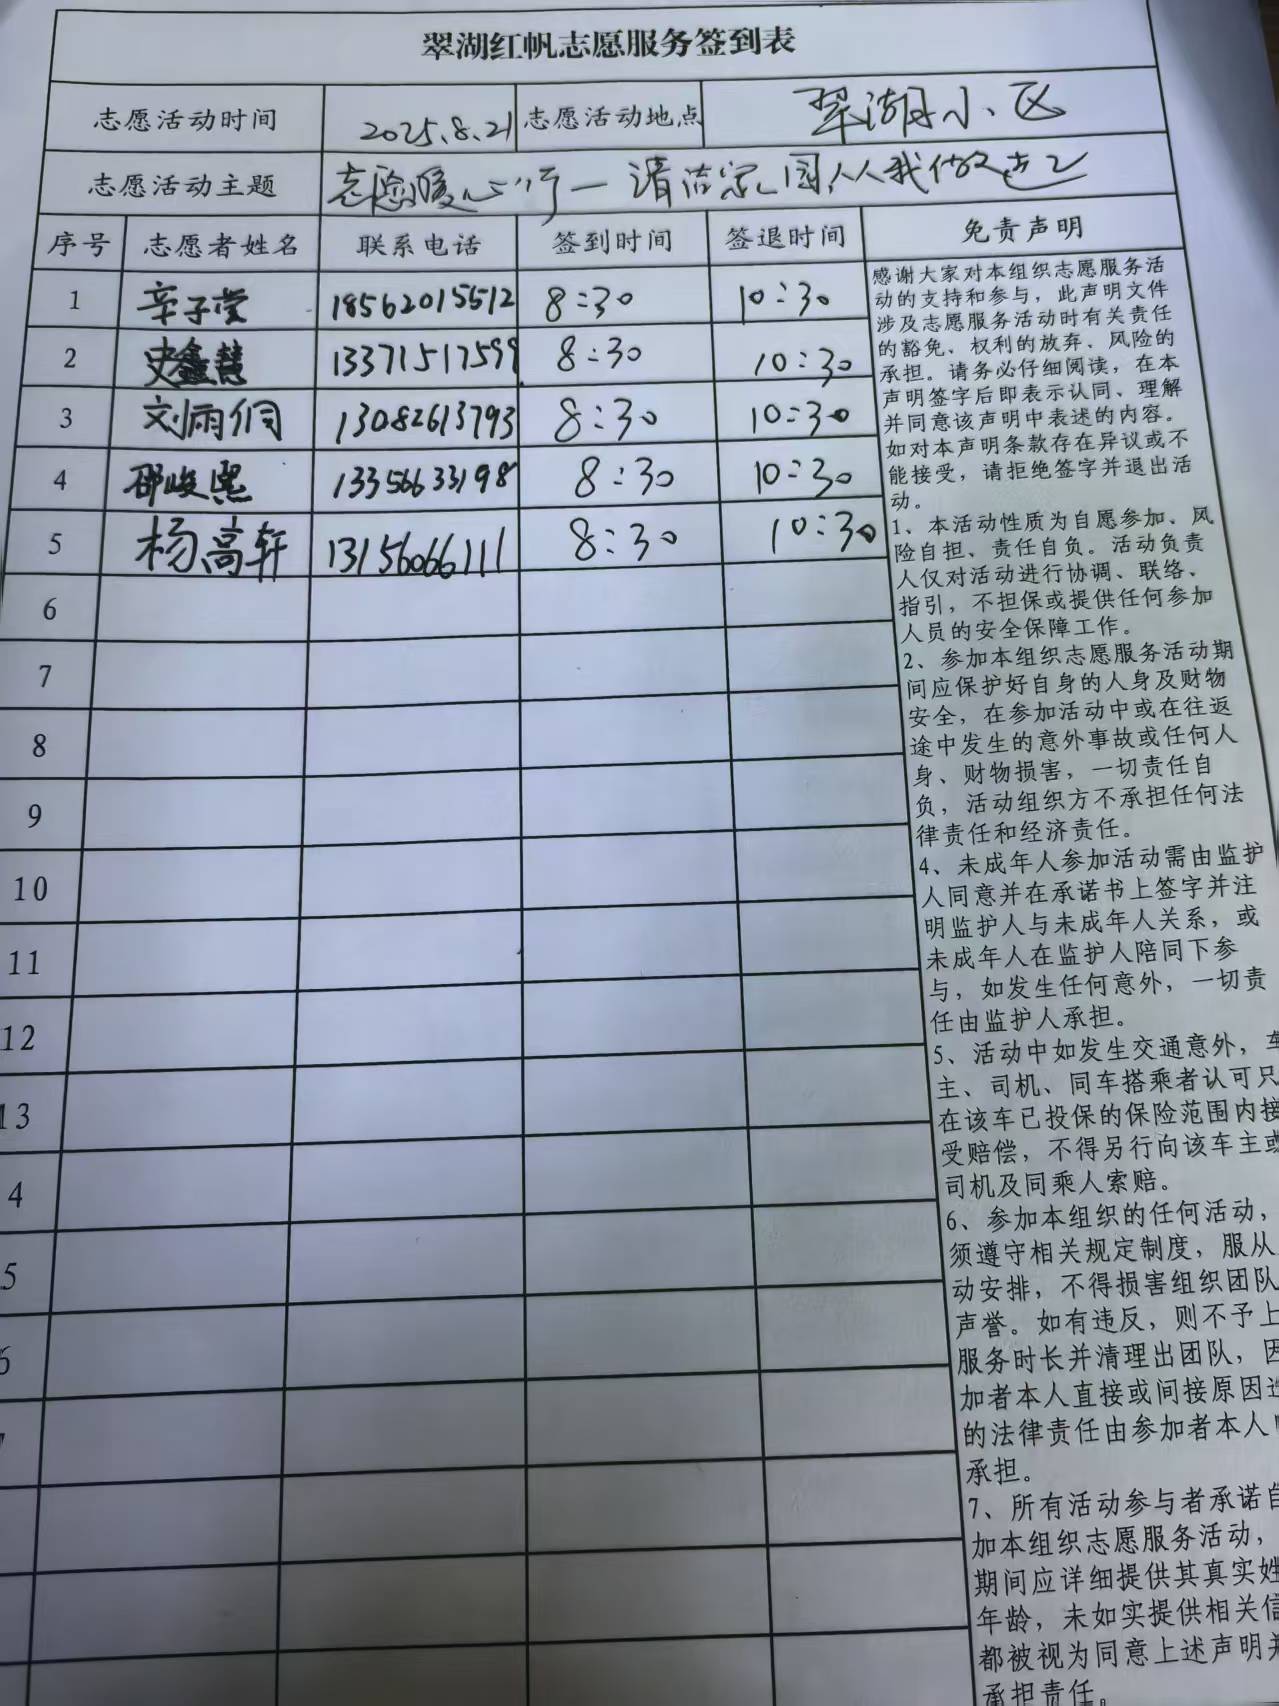 翠湖红帆志愿服务签到表
志愿活动时间 2025.8.21 志愿活动地点 翠湖小区
志愿活动主题 志愿暖心行一清洁家园人人我做起
序号 志愿者姓名 联系电话 签到时间 签退时间 免责声明
1 辛子萱 18562015512 8:30 10:30
2 史鑫慧 13371517599 8:30 10:30
3 刘雨侗 13082613793 8:30 10:30
4 邵峻熙 13356633198 8:30 10:30
5 杨高轩 13156066111 8:30 10:30
6
7
8
9
10
11
12
13
4
5
6
感谢大家对本组织志愿服务活
动的支持和参与，此声明文件
涉及志愿服务活动时有关责任
的豁免、权利的放弃、风险的
承担。请务必仔细阅读，在本
声明签字后即表示认同、理解
并同意该声明中表述的内容。
如对本声明条款存在异议或不
能接受，请拒绝签字并退出活
动。
1、本活动性质为自愿参加、风
险自担、责任自负。活动负责
人仅对活动进行协调、联络、
指引，不担保或提供任何参加
人员的安全保障工作。
2、参加本组织志愿服务活动期
间应保护好自身的人身及财物
安全，在参加活动中或在往返
途中发生的意外事故或任何人
身、财物损害，一切责任自
负，活动组织方不承担任何法
律责任和经济责任。
4、未成年人参加活动需由监护
人同意并在承诺书上签字并注
明监护人与未成年人关系，或
未成年人在监护人陪同下参
与，如发生任何意外，一切责
任由监护人承担。
5、活动中如发生交通意外，车
主、司机、同车搭乘者认可只
在该车已投保的保险范围内接
受赔偿，不得另行向该车主或
司机及同乘人索赔。
6、参加本组织的任何活动，
须遵守相关规定制度，服从
动安排，不得损害组织团队
声誉。如有违反，则不予上
服务时长并清理出团队，因
加者本人直接或间接原因造
的法律责任由参加者本人
承担。
7、所有活动参与者承诺自
加本组织志愿服务活动，
期间应详细提供其真实姓
年龄，未如实提供相关信
都被视为同意上述声明并
承担责任。